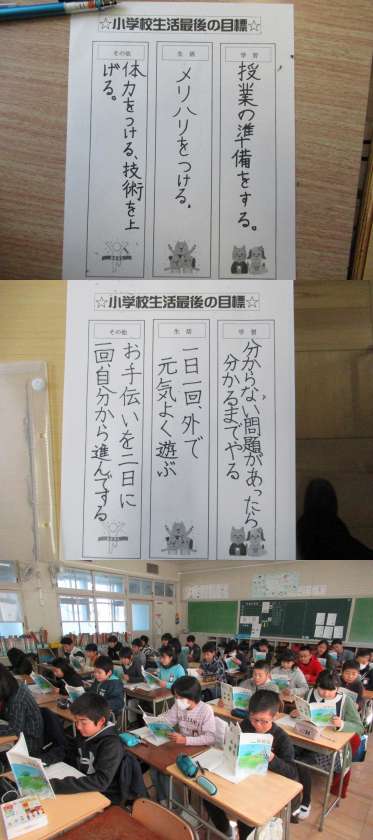 ☆小学校生活最後の目標☆
学習
授業の準備をする。
生活
メリハリをつける。
その他
体力をつける、技術を上
げる。
☆小学校生活最後の目標☆
学習
分からない問題があったら
分かるまでやる
生活
一日一回、外で
元気よく遊ぶ
その他
お手伝いを二日に
一回、自分から進んでする